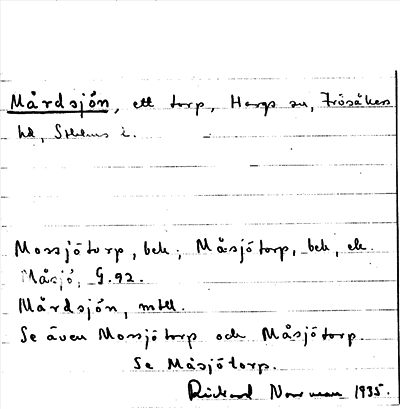 Mårdsjön, ett torp, Hargs sn, Frösåkers
hd, Sthlms l.
Mossjötorp, bek; Måsjötorp, bek, ek.
Måsjö, G.92.
Mårdsjön, mtll.
Se även Mossjötorp och Måsjötorp.
Se Måsjötorp.
Rickard Norrman 1935.